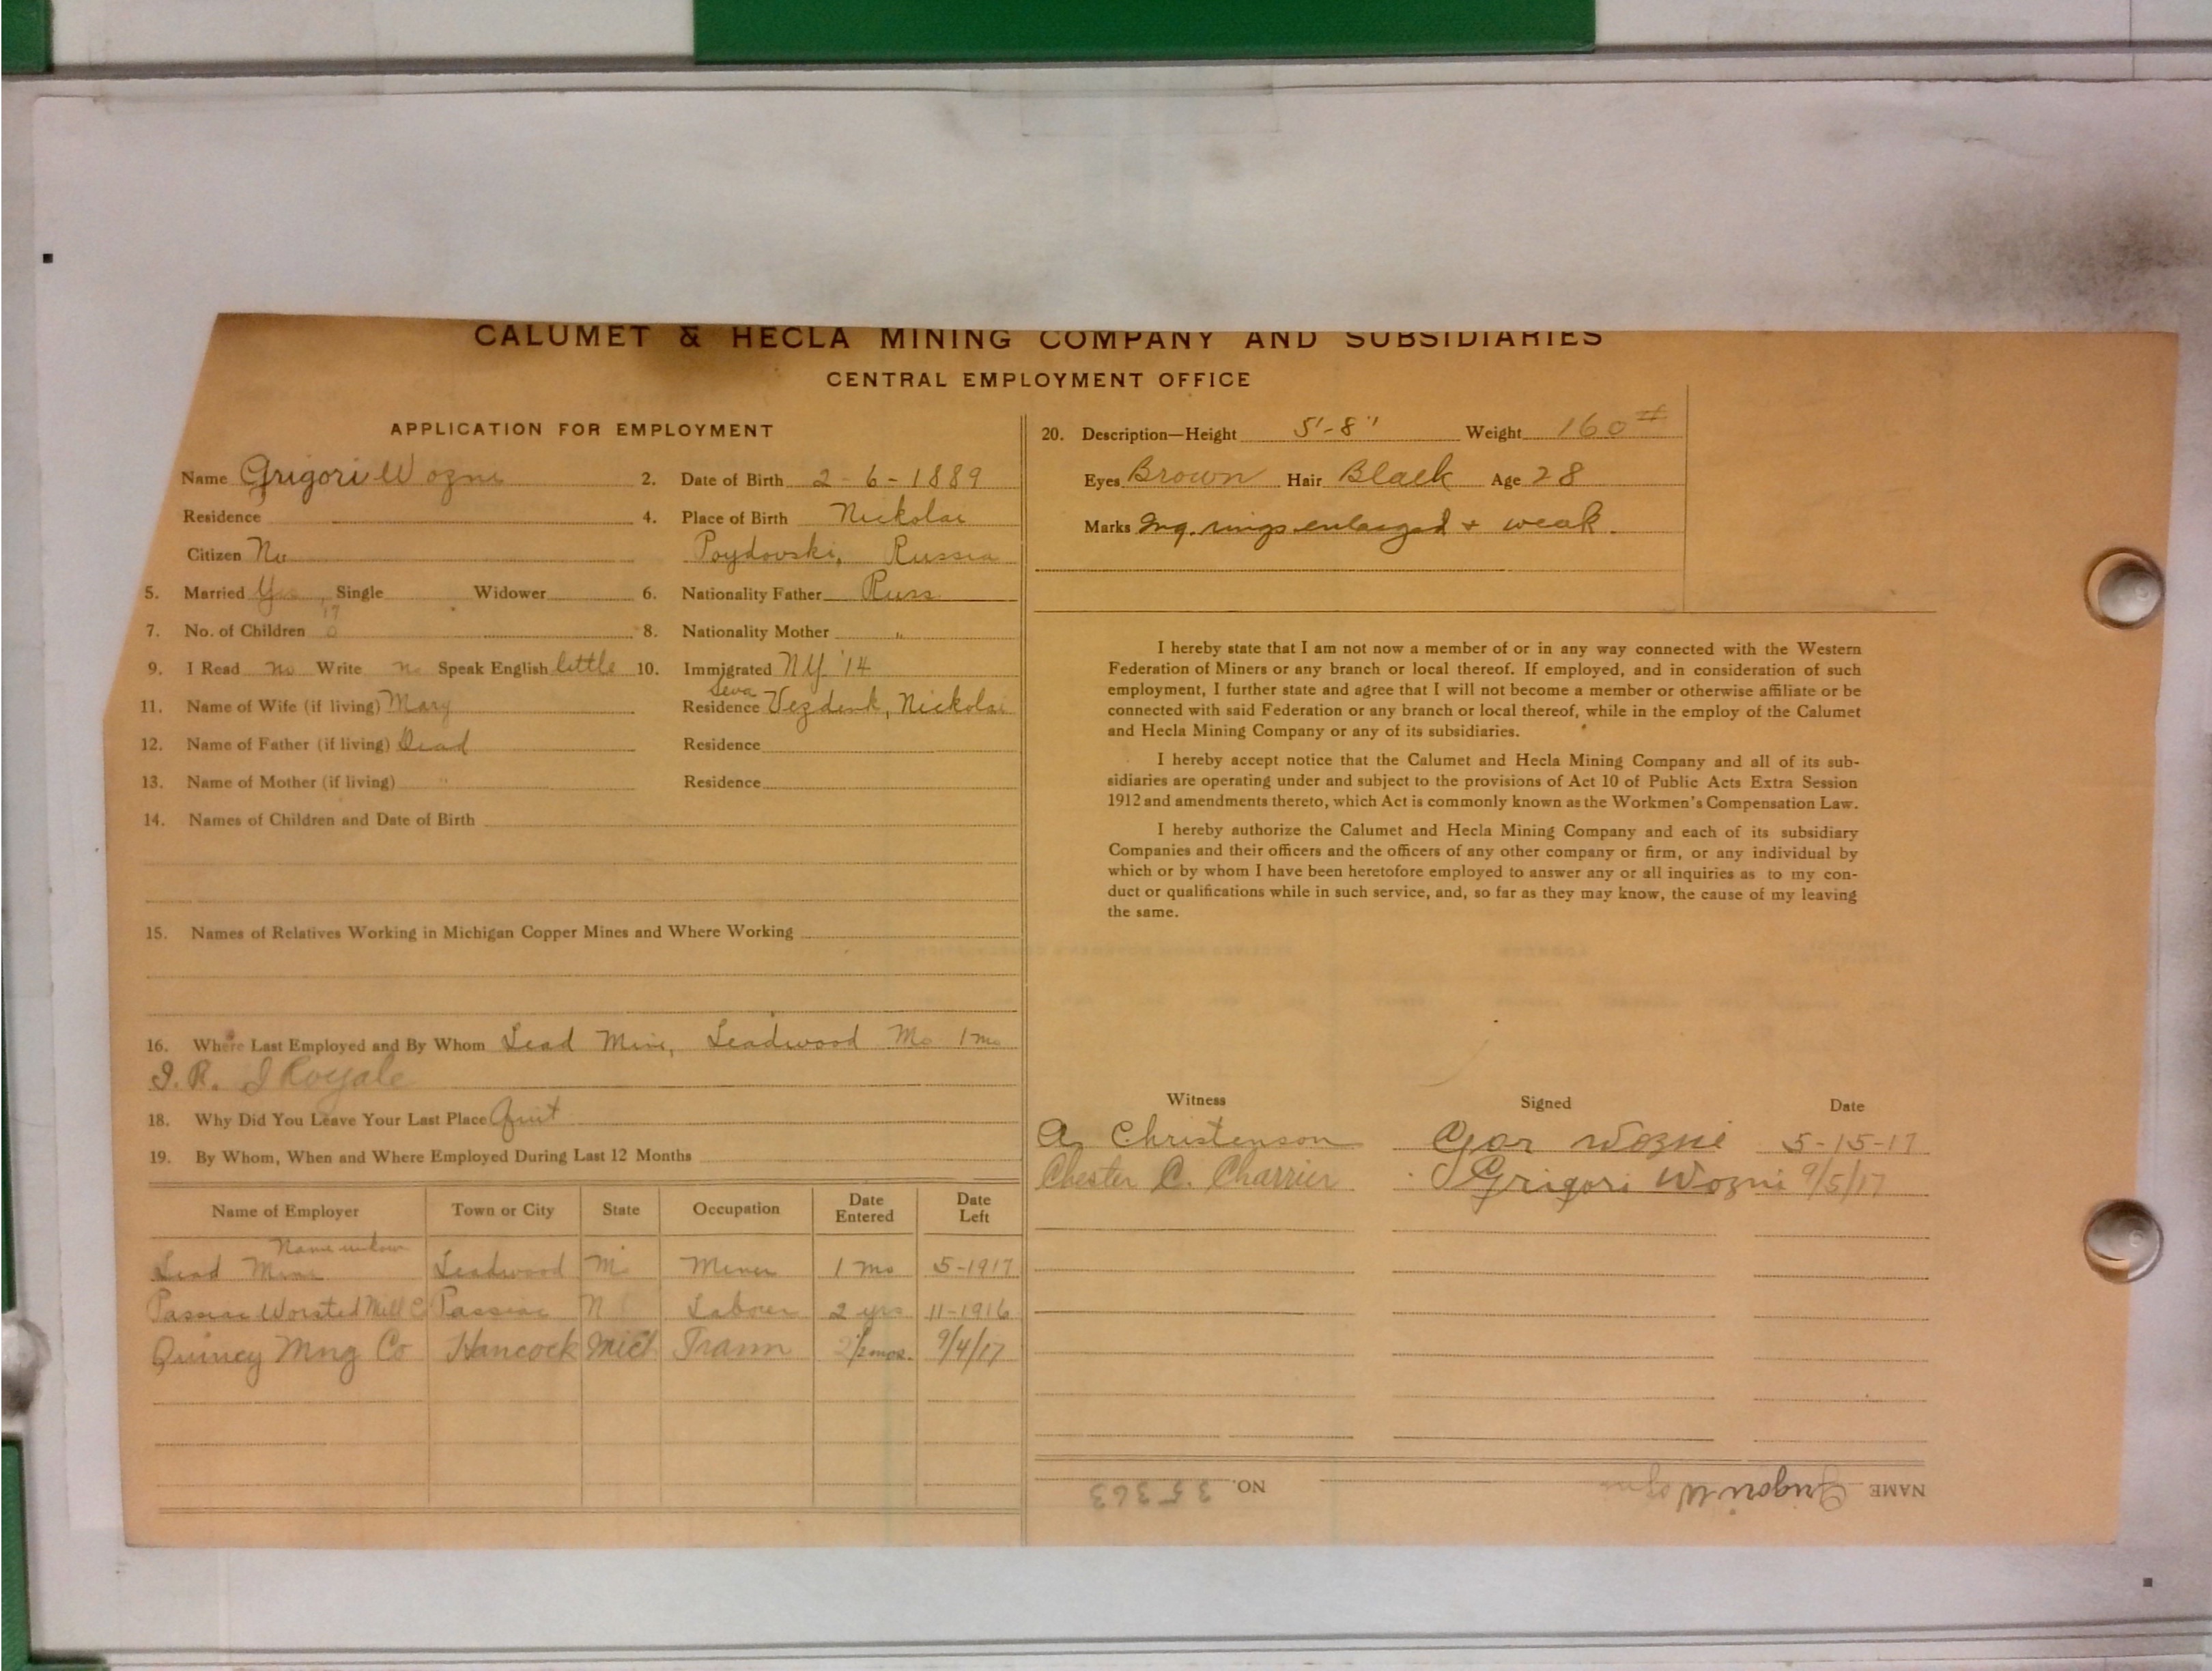 CALUMET & HECLA MINING COMPANY AND SUBSIDIARIES
CENTRAL EMPLOYMENT OFFICE
APPLICATION FOR EMPLOYMENT
Name Grigori Wozni 2. Date of Birth 2-6-1889
Residence 4. Place of Birth Nickolai
Citizen No Poydovski, Russia
5. Married Yes Single Widower 6. Nationality Father Russ
7. No. of Children 0 8. Nationality Mother "
9. I Read no Write no Speak English little 10. Immigrated N.Y. '14
11. Name of Wife (if living) Mary Residence Vezdenk, Nickolai
12. Name of Father (if living) Dead Residence
13. Name of Mother (if living) " Residence
14. Names of Children and Date of Birth
15. Names of Relatives Working in Michigan Copper Mines and Where Working
16. Where Last Employed and By Whom Lead Mine, Leadwood Mo 1 mo
I.R. I Royale
18. Why Did You Leave Your Last Place Quit
19. By Whom, When and Where Employed During Last 12 Months
Name of Employer Town or City State Occupation Date Entered Date Left
Name unknown
Lead Mine Leadwood Mo Miner 1 mo 5-1917
Passiac Worsted Mill Co Passiac N Laborer 2 yrs 11-1916
Quincy Mng Co Hancock Mich Tramm 2 1/2 mos. 9/4/17
20. Description—Height 5'-8" Weight 160#
Eyes Brown Hair Black Age 28
Marks Ing. rings enlarged + weak.
I hereby state that I am not now a member of or in any way connected with the Western
Federation of Miners or any branch or local thereof. If employed, and in consideration of such
employment, I further state and agree that I will not become a member or otherwise affiliate or be
connected with said Federation or any branch or local thereof, while in the employ of the Calumet
and Hecla Mining Company or any of its subsidiaries.
I hereby accept notice that the Calumet and Hecla Mining Company and all of its sub-
sidiaries are operating under and subject to the provisions of Act 10 of Public Acts Extra Session
1912 and amendments thereto, which Act is commonly known as the Workmen's Compensation Law.
I hereby authorize the Calumet and Hecla Mining Company and each of its subsidiary
Companies and their officers and the officers of any other company or firm, or any individual by
which or by whom I have been heretofore employed to answer any or all inquiries as to my con-
duct or qualifications while in such service, and, so far as they may know, the cause of my leaving
the same.
Witness Signed Date
A. Christenson Wozni 5-15-17
Chester C. Charrier Grigori Wozni 9/5/17
NAME Grigori Wozni NO. 35363